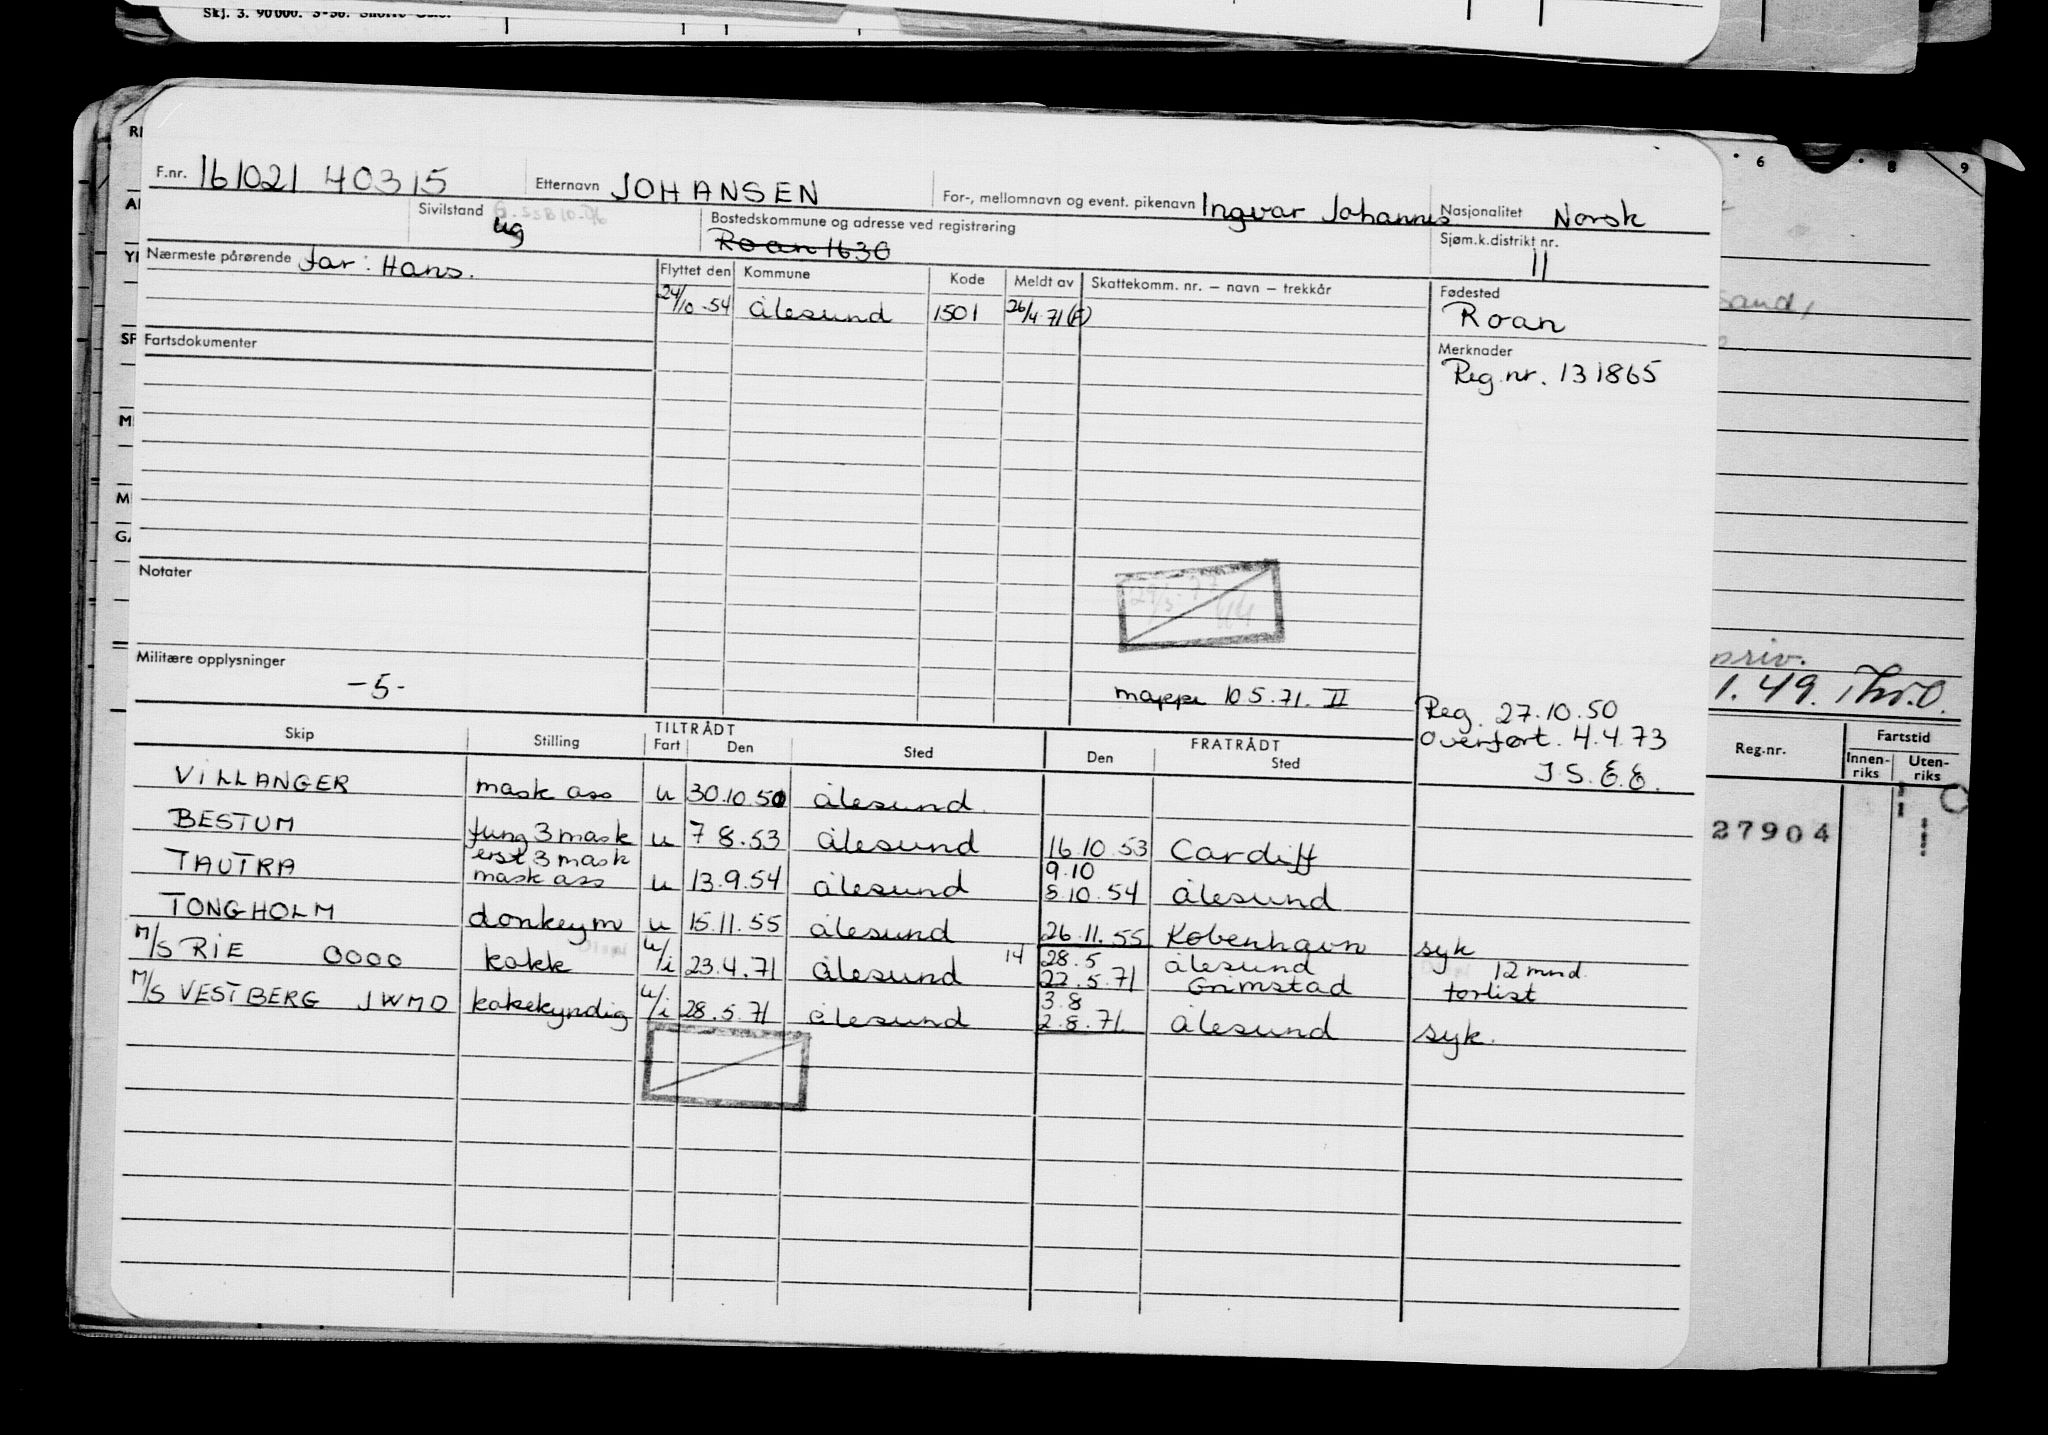 Skj. 3. 90000. 3-50.
F.nr. 161021 40315 Etternavn JOHANSEN For-, mellomnavn og event. pikenavn Ingvar Johannes Nasjonalitet Norsk
Sivilstand ug Bostedskommune og adresse ved registrering Roan 1630 Sjøm.k.distrikt nr. 11
Nærmeste pårørende far: Hans.
Flyttet den Kommune Kode Meldt av Skattekomm. nr. – navn – trekkår Fødested
24/10-54 Ålesund 1501 26/4 71 (F) Roan
Fartsdokumenter Merknader
Reg.nr. 131865
Notater
Militære opplysninger
-5-
mappe 10 5.71. II
Reg. 27.10.50
Overført. 4.4.73
J.S.E.E.
Skip Stilling TILTRÅDT Fart Den Sted FRATRÅDT Den Sted
VILLANGER mask ass u 30.10.50 Ålesund
BESTUM fung 3 mask u 7 8.53 Ålesund 16.10 53 Cardiff
erst 3 mask 9.10
TAUTRA mask ass u 13.9.54 Ålesund 8 10.54 Ålesund
TONGHOLM donkeym u 15.11.55 Ålesund 26.11.55 København syk
M/S RIE OOOO kokk u/i 23.4.71 Ålesund 14 28.5 Ålesund 12 mnd.
22.5.71 Grimstad forlist
M/S VESTBERG JWMO kokekyndig u/i 28.5.71 Ålesund 3.8
2.8.71. Ålesund syk.
6 8 9
sand,
priv.
1.49.
Reg.nr. Fartstid
Innenriks Utenriks
27904